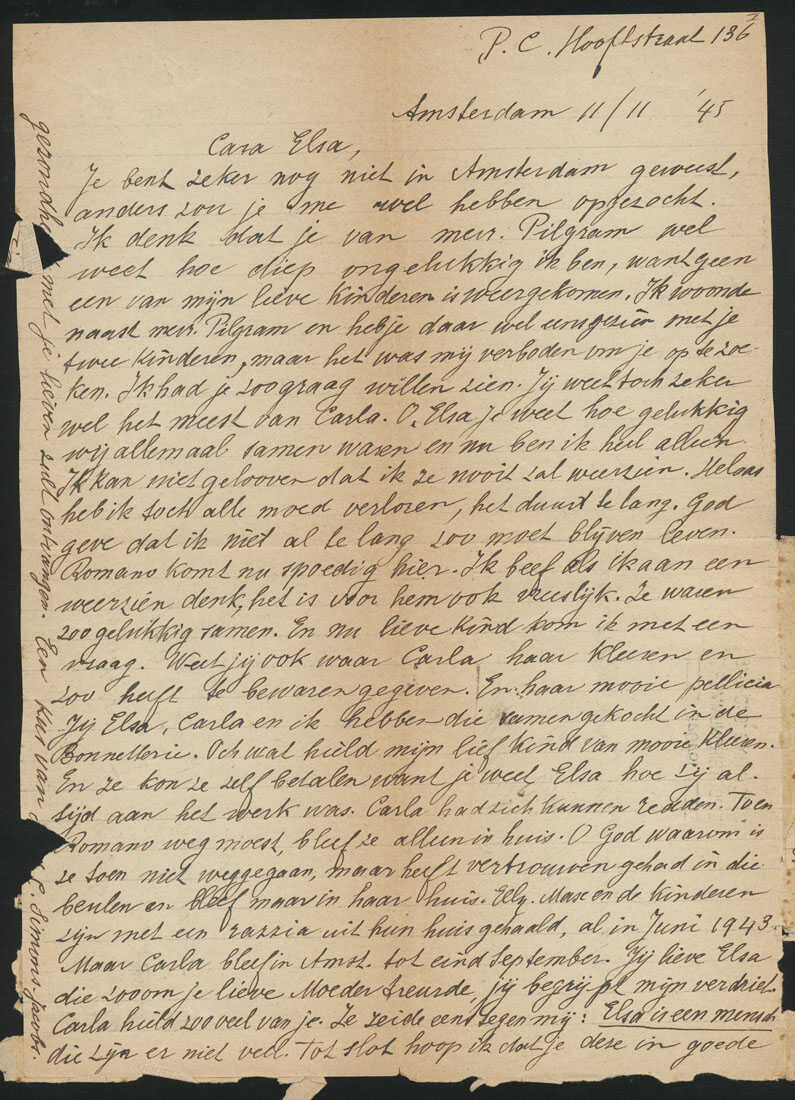 P. C. Hooftstraat 136
Amsterdam 11/11 '45
Cara Elsa,
Je bent zeker nog niet in Amsterdam geweest,
anders zou je me wel hebben opgezocht.
Ik denk dat je van mevr. Pilgram wel
weet hoe diep ongelukkig ik ben, want geen
een van mijn lieve kinderen is weergekomen. Ik woonde
naast mevr. Pilgram en heb je daar wel eens gezien met je
twee kinderen, maar het was mij verboden om je op te zoe-
ken. Ik had je zoo graag willen zien. Jij weet toch zeker
wel het meest van Carla. O, Elsa je weet hoe gelukkig
wij allemaal samen waren en nu ben ik heel alleen
Ik kan niet gelooven dat ik ze nooit zal weerzien. Helaas
heb ik toch alle moed verloren, het duurt te lang. God
geve dat ik niet al te lang zoo moet blijven leven.
Romano komt nu spoedig hier. Ik beef als ik aan een
weerzien denk, het is voor hem ook vreeslijk. Ze waren
zoo gelukkig samen. En nu lieve kind kom ik met een
vraag. Weet jij ook waar Carla haar kleeren en
zoo heeft te bewaren gegeven. En haar mooie pellicia
Jij Elsa, Carla en ik hebben die samen gekocht in de
Bonnetterie. Och wat hield mijn lief kind van mooie kleeren.
En ze kon ze zelf betalen want je weet Elsa hoe zij al-
tijd aan het werk was. Carla had zich kunnen redden. Toen
Romano weg moest, bleef ze alleen in huis. O God waarom is
ze toen niet weggegaan, maar heeft vertrouwen gehad in die
beulen en bleef maar in haar huis. Elly. Max en de kinderen
zijn met een razzia uit hun huis gehaald, al in Juni 1943.
Maar Carla bleef in Amst. tot eind September. Jij lieve Elsa
die zoo om je lieve Moeder treurde, jij begrijpt mijn verdriet.
Carla hield zoo veel van je. Ze zeide eens tegen mij: Elsa is een mensch
die zijn er niet veel. Tot slot hoop ik dat je deze in goede
met je lieven zult ontvangen. Een kus van
S. Simons-Jacobs.